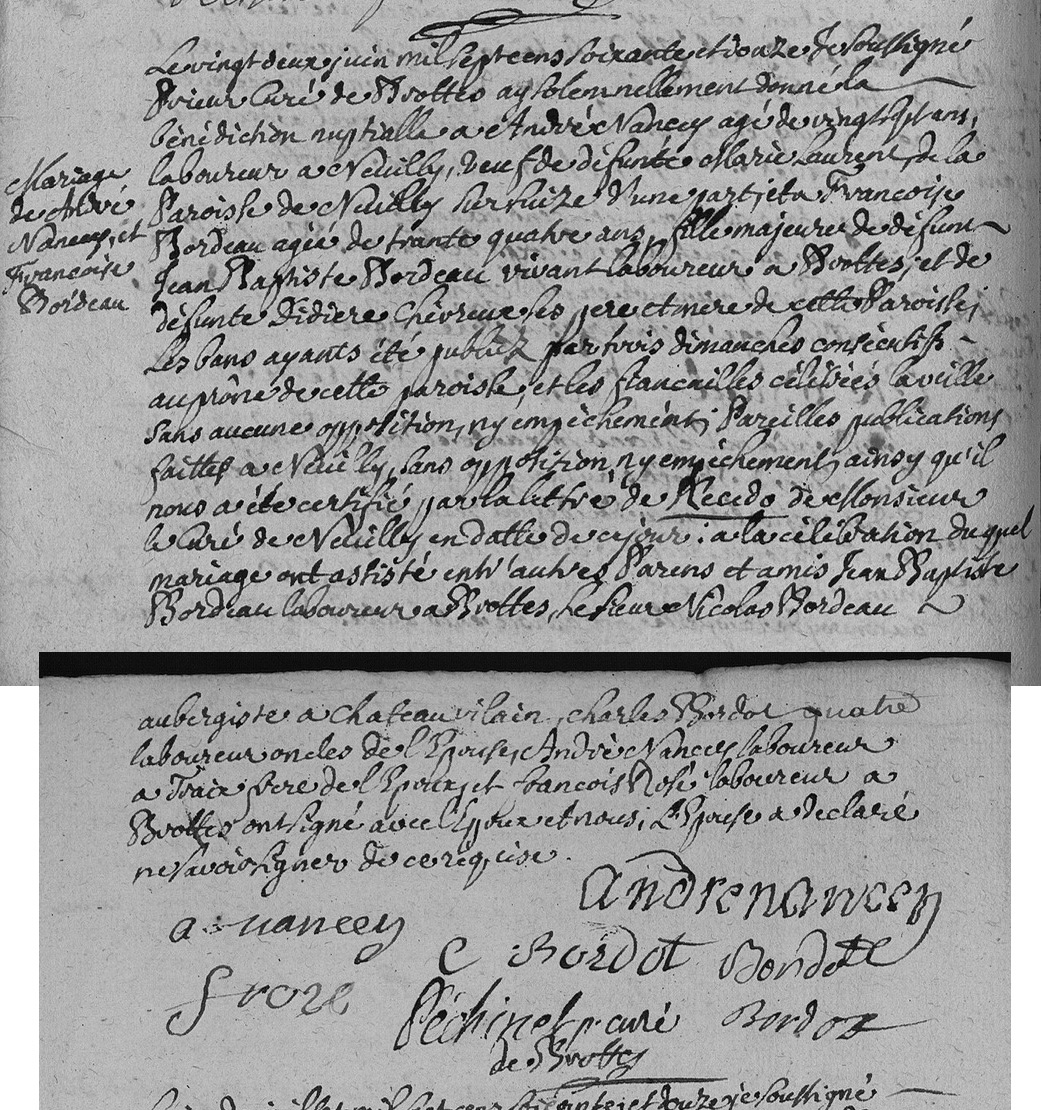 Mariage
de André
Nancey, et
Francoise
Bordeau
Le vingt deux juin mil sept cens soixante et onze je soussigné
prieur Curé de Brottes ay solemnellement donné la
bénédiction nuptialle a André Nancey agé de vingt sept ans,
laboureur a Neuilly, veuf de défunte Marie Laurent, de la
Paroisse de Neuilly sur suize d'une part, et a Francoise
Bordeau agée de trante quatre ans, fille majeure de défunt
Jean Baptiste Bordeau vivant laboureur a Brottes, et de
défunte Didiere Chevreux ses pere et mere de cette Paroisse;
Les bans ayants été publiez par trois dimanches consécutifs
au prône de cette paroisse, et les fiancailles célébrées la veille
sans aucune opposition, ny empêchement; Pareilles publications
faittes a Neuilly, sans opposition ny empêchement, ainsy qu'il
nous a été certifié par la lettre de Recedo de Monsieur
le Curé de Neuilly en datte de ce jour : a la célébration duquel
mariage ont assisté entr'autres Parens et amis Jean Baptiste
Bordeau laboureur a Brottes, le sieur Nicolas Bordeau
aubergiste a Chateauvilain, charles Bordot quatre
laboureur oncles de l'Epouse, André Nancey laboureur
a frere de l'Epoux, et francois Rosé laboureur a
Brottes ont signé avec l'Epoux et nous, L'Epouse a déclaré
ne savoir signer de ce requise.
andre nancey
a nancey
C Bordot Bordot
f roze
Péchinet p. curé Bordot
de Brottes
soixante et douze je soussigné